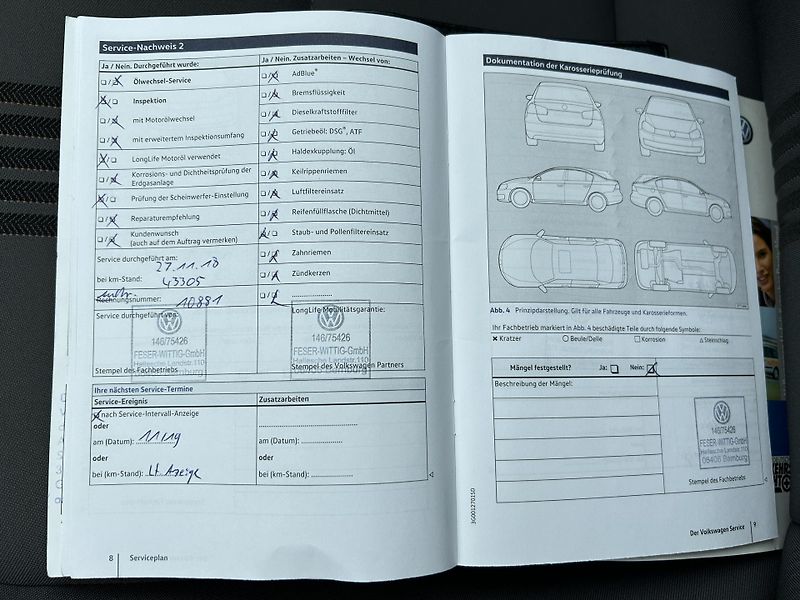 Service-Nachweis 2
Ja / Nein. Durchgeführt wurde:
Ölwechsel-Service
Inspektion
mit Motorölwechsel
mit erweitertem Inspektionsumfang
LongLife Motoröl verwendet
Korrosions- und Dichtheitsprüfung der
Erdgasanlage
Prüfung der Scheinwerfer-Einstellung
Reparaturempfehlung
Kundenwunsch
(auch auf dem Auftrag vermerken)
Service durchgeführt am:
27.11.18
bei km-Stand: 43305
Rechnungsnummer: 10881
Service durchgeführt von:
146/75426
FESER-WITTIG-GmbH
Hallesche Landstr.110
Stempel des Fachbetriebs
Ja / Nein. Zusatzarbeiten – Wechsel von:
AdBlue®
Bremsflüssigkeit
Dieselkraftstofffilter
Getriebeöl: DSG®, ATF
Haldexkupplung: Öl
Keilrippenriemen
Luftfiltereinsatz
Reifenfüllflasche (Dichtmittel)
Staub- und Pollenfiltereinsatz
Zahnriemen
Zündkerzen
LongLife Mobilitätsgarantie:
146/75426
FESER-WITTIG-GmbH
Hallesche Landstr.110
06406 Bernburg
Stempel des Volkswagen Partners
Ihre nächsten Service-Termine
Service-Ereignis
nach Service-Intervall-Anzeige
oder
am (Datum): 11/19
oder
bei (km-Stand): Lt Anzeige
Zusatzarbeiten
am (Datum):
oder
bei (km-Stand):
8 Serviceplan
Dokumentation der Karosserieprüfung
Abb. 4 Prinzipdarstellung. Gilt für alle Fahrzeuge und Karosserieformen.
Ihr Fachbetrieb markiert in Abb. 4 beschädigte Teile durch folgende Symbole:
Kratzer Beule/Delle Korrosion Steinschlag
Mängel festgestellt? Ja: Nein:
Beschreibung der Mängel:
146/75426
FESER-WITTIG-GmbH
Hallesche Landstr.110
06406 Bernburg
Stempel des Fachbetriebs
3G0012701SD
Der Volkswagen Service 9